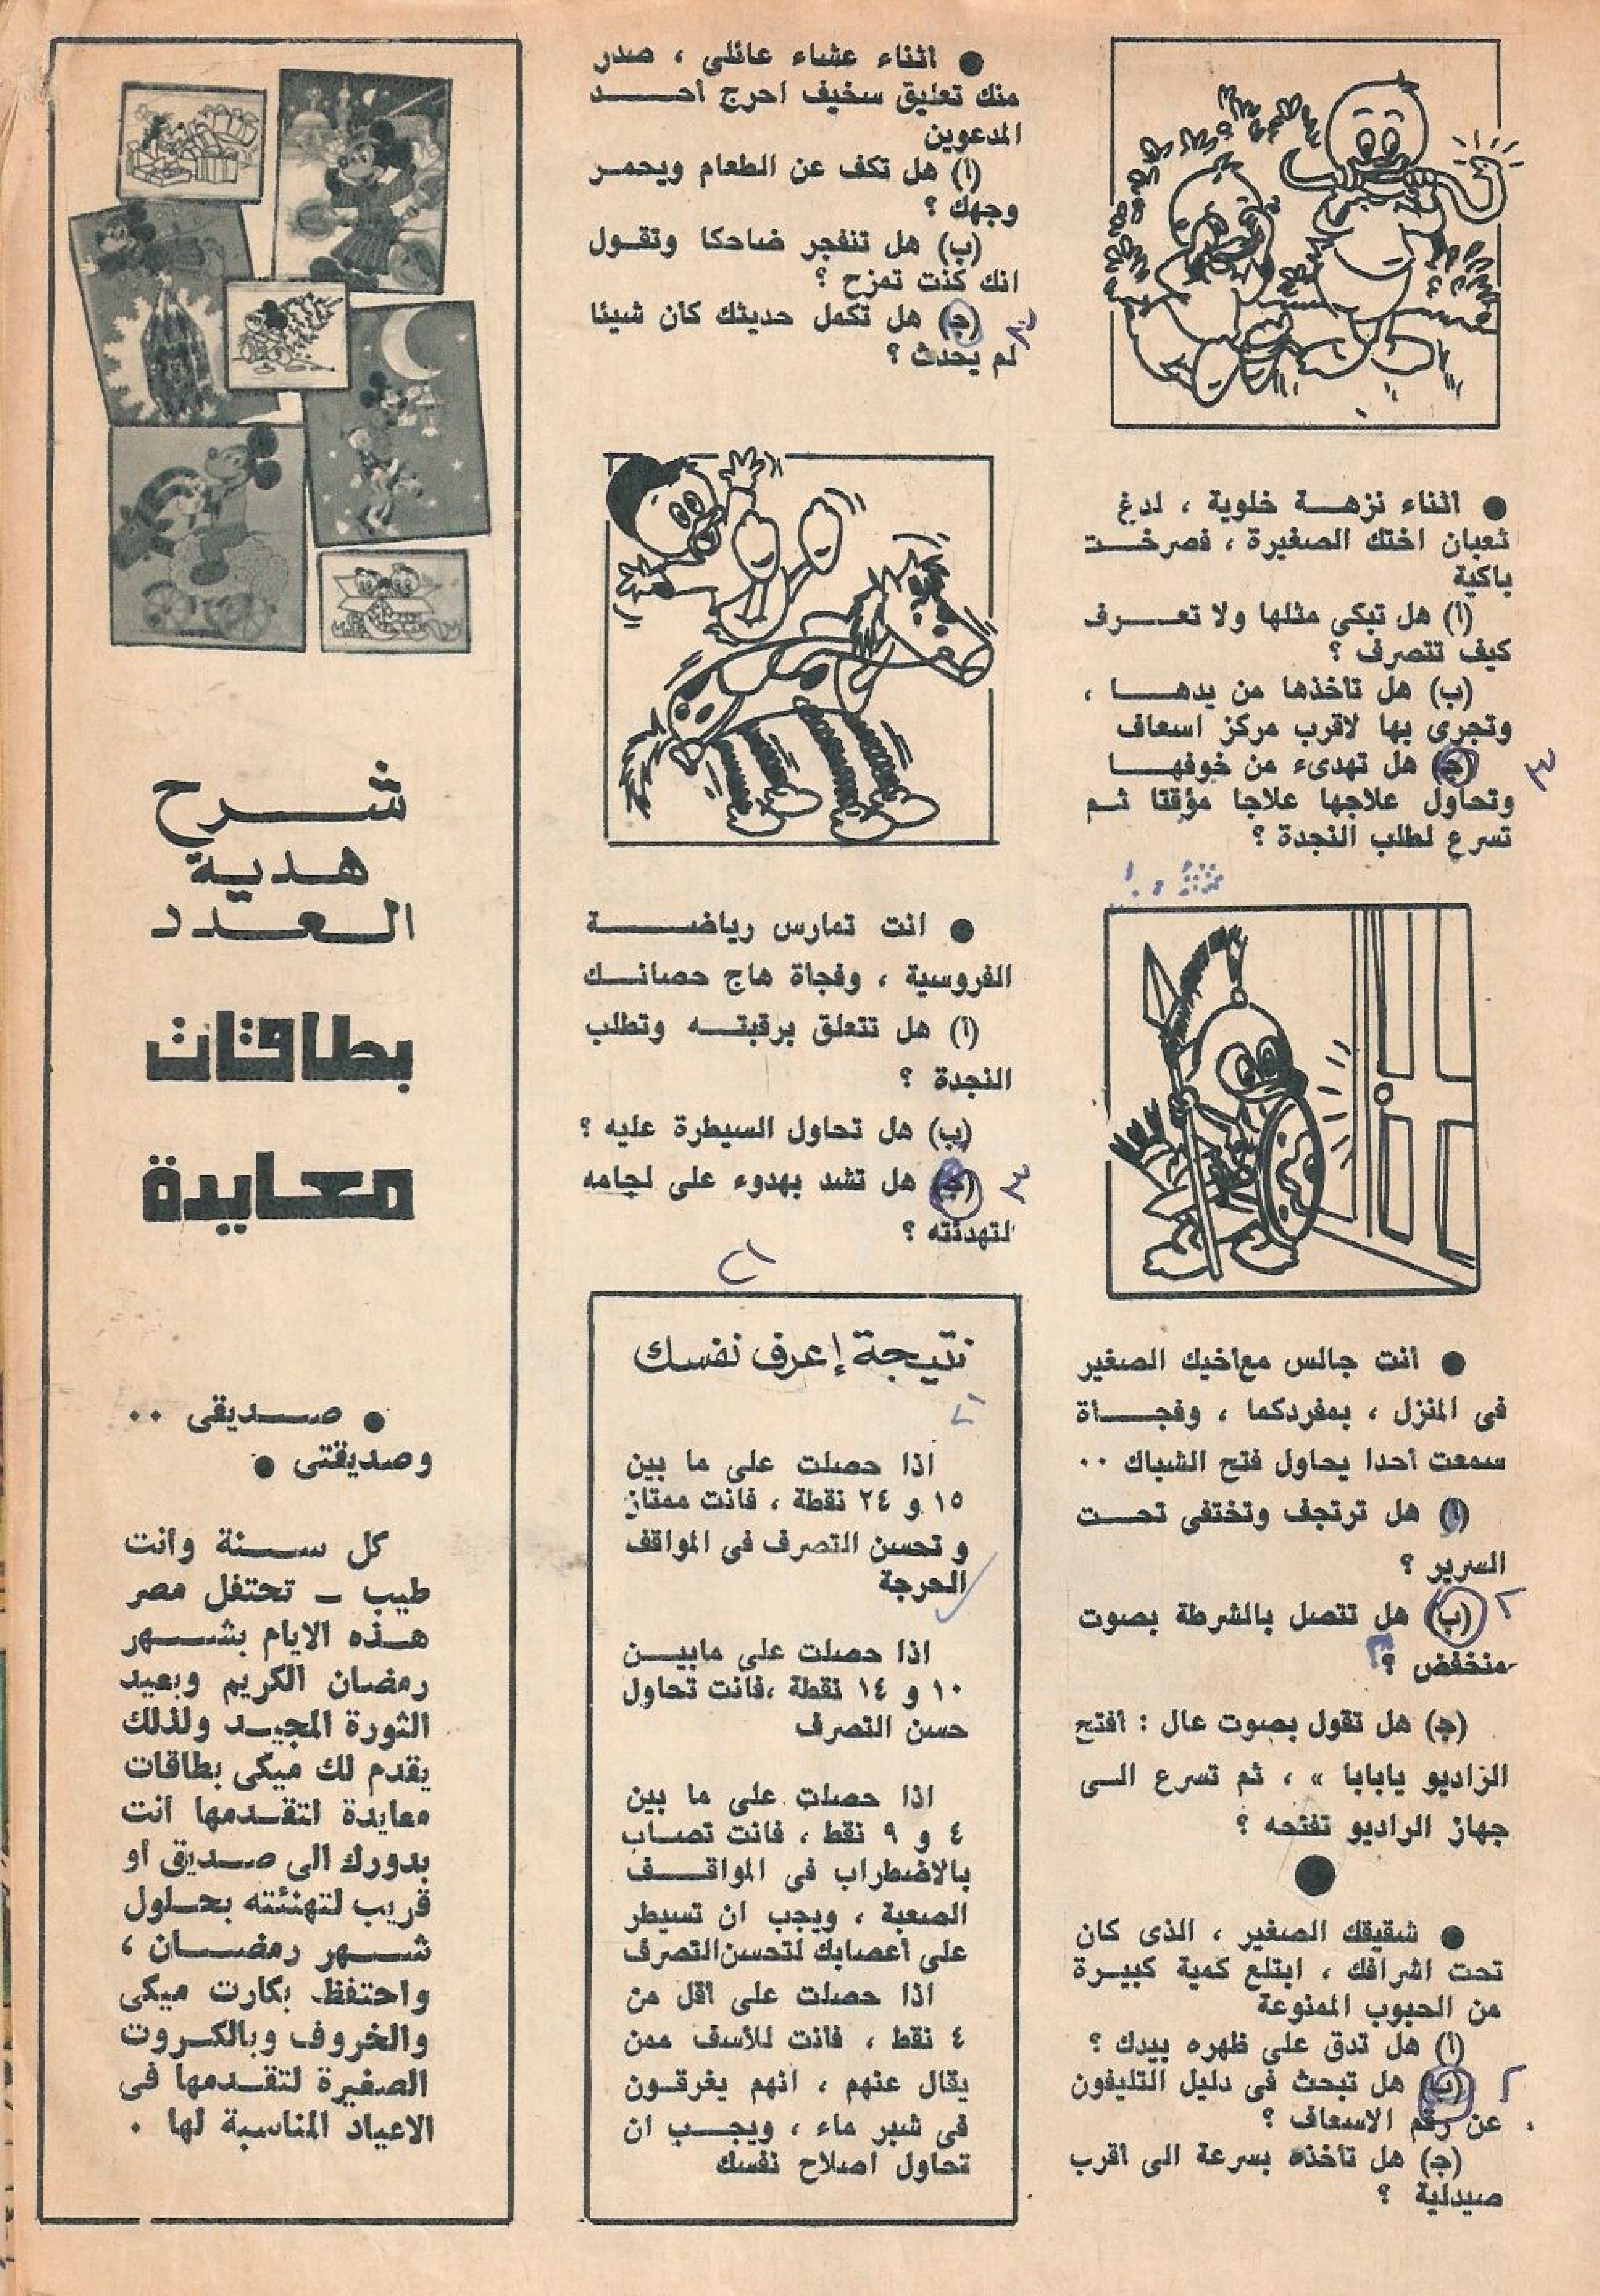 ● اثناء نزهـــة خلوية ، لدغ
ثعبان اختك الصغيرة ، فصرخــت
باكية
(ا) هل تبكى مثلها ولا تعـــرف
كيف تتصرف ؟
(ب) هل تاخذها من يدهـــا ،
وتجرى بها لاقرب مركز اسعاف
(ج) هل تهدىء من خوفهـــا
وتحاول علاجها علاجا مؤقتا ثـم
تسرع لطلب النجدة ؟
٣
● أنت جالس مع أخيك الصغير
فى المنزل ، بمفردكما ، وفجــأة
سمعت أحدا يحاول فتح الشباك ٠٠
(أ) هل ترتجف وتختفى تحــت
السرير ؟
(ب) هل تتصل بالشرطة بصوت
منخفض ؟
٢
(ج) هل تقول بصوت عال : أفتح
الراديو يابابا » ، ثم تسرع الـى
جهاز الراديو تفتحه ؟
● شقيقك الصغير ، الذى كان
تحت اشرافك ، ابتلع كمية كبيـرة
من الحبوب الممنوعة
(أ) هل تدق على ظهره بيدك ؟
(ب) هل تبحث فى دليل التليفون
عن رقم الاسعاف ؟
٢
(ج) هل تأخذه بسرعة الى أقرب
صيدلية ؟
● اثناء عشاء عائلى ، صدر
منك تعليق سخيف احرج أحـــد
المدعوين
(ا) هل تكف عن الطعام ويحمـر
وجهك ؟
(ب) هل تنفجر ضاحكا وتقـول
انك كنت تمزح ؟
(ج) هل تكمل حديثك كأن شيئا
لم يحدث ؟
٣
● انت تمارس رياضـــــة
الفروسية ، وفجاة هاج حصانــك
(أ) هل تتعلق برقبتــه وتطلب
النجدة ؟
(ب) هل تحاول السيطرة عليه ؟
(ج) هل تشد بهدوء على لجامه
لتهدئته ؟
٣
نتيجة إعرف نفسك
اذا حصلت على ما بين
١٥ و ٢٤ نقطة ، فانت ممتاز
و تحسن التصرف فى المواقف
الحرجة
اذا حصلت على مابيــن
١٠ و ١٤ نقطة ،فانت تحاول
حسن التصرف
اذا حصلت على ما بين
٤ و ٩ نقط ، فانت تصـاب
بالاضطراب فى المواقــف
الصعبة ، ويجب ان تسيطر
على أعصابك لتحسن التصرف
اذا حصلت على اقل من
٤ نقط ، فانت للأسف ممن
يقال عنهم ، انهم يغرقـون
فى شبر ماء ، ويجــب ان
تحاول اصلاح نفسك
شـــرح
هـديـة
الـعــدد
بطاقات
معـايدة
● صــديقى ٠٠
وصديقتى ●
كل ســنة وأنت
طيب ــ تحتفل مصر
هــذه الايام بشــهر
رمضان الكريم وبعيد
الثورة المجيــد ولذلك
يقدم لك ميكى بطاقات
معايدة لتقـدمها أنت
بدورك الى صـديق أو
قريب لتهنئته بحـلول
شــهر رمضــان ،
واحتفظ بكارت ميكى
والخروف وبالكـروت
الصغيرة لتقـدمها فى
الاعياد المناسبة لها ٠